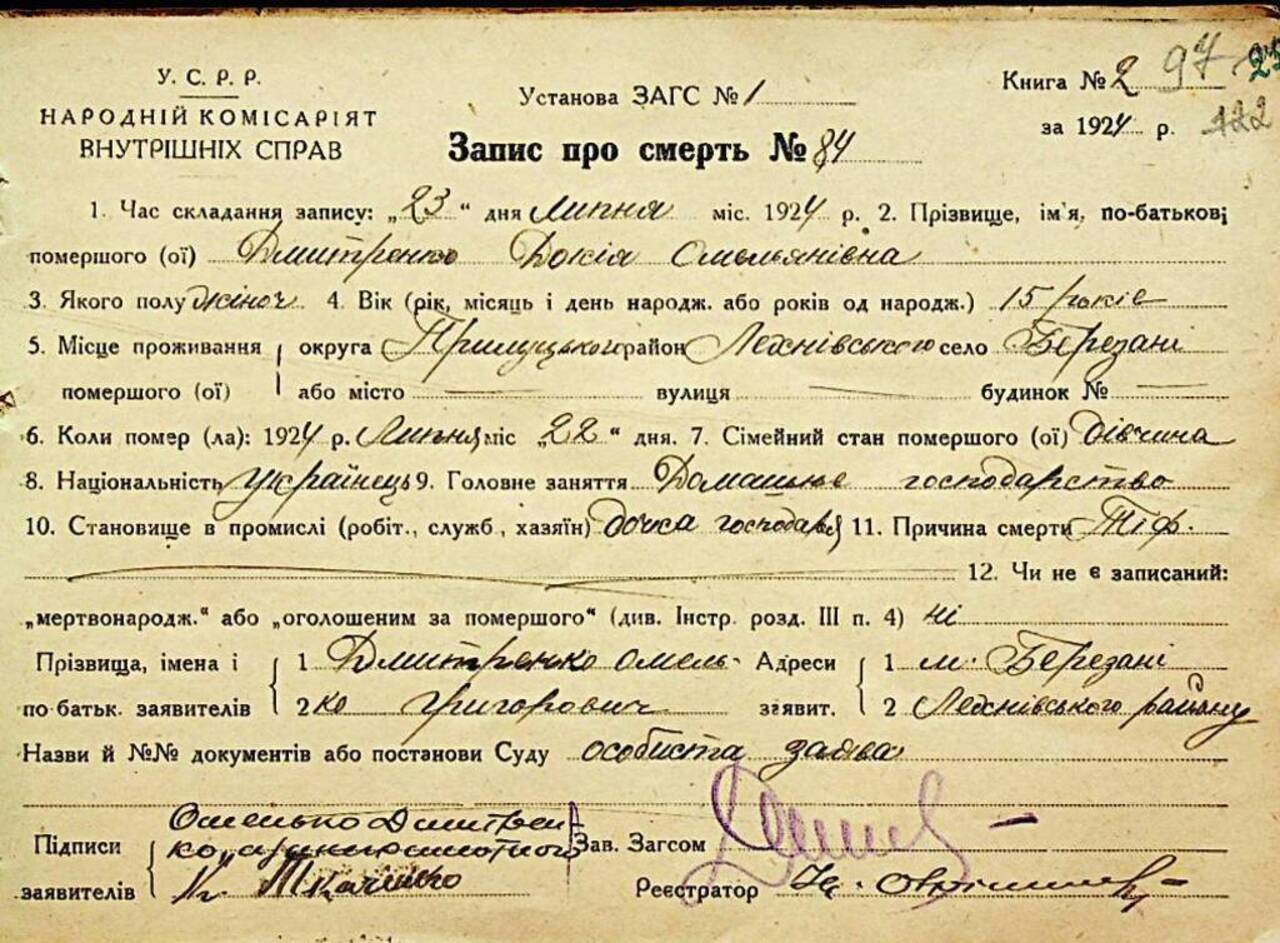 У. С. Р. Р.
НАРОДНІЙ КОМІСАРІЯТ
ВНУТРІШНІХ СПРАВ
Установа ЗАГС № 1
Книга № 2 97
за 1924 р. 122
Запис про смерть № 84
1. Час складання запису: „23“ дня Липня міс. 1924 р. 2. Прізвище, ім'я, по-батькові
помершого (ої) Дмитренко Докія Омельянівна
3. Якого полу жіноч. 4. Вік (рік, місяць і день народж. або років од народж.) 15 років
5. Місце проживання округа Прилуцького район Лехнівського село Березані
помершого (ої) або місто вулиця будинок №
6. Коли помер (ла): 1924 р. Липня міс „22“ дня. 7. Сімейний стан помершого (ої) дівчина
8. Національність Українець 9. Головне заняття Домашнье господарство
10. Становище в промислі (робіт., служб., хазяїн) дочка господаря 11. Причина смерти Тіф.
12. Чи не є записаний:
„мертвонародж.“ або „оголошеним за помершого“ (див. Інстр. розд. III п. 4) ні
Прізвища, імена і 1 Дмитренко Омель- Адреси 1 м. Березані
по батьк. заявителів 2 ко Григорович заявит. 2 Лехнівського району
Назви й №№ документів або постанови Суду особиста заява
Омелько Дмитрен
Підписи ко, Зав. Загсом
заявителів Ткаченко Реєстратор